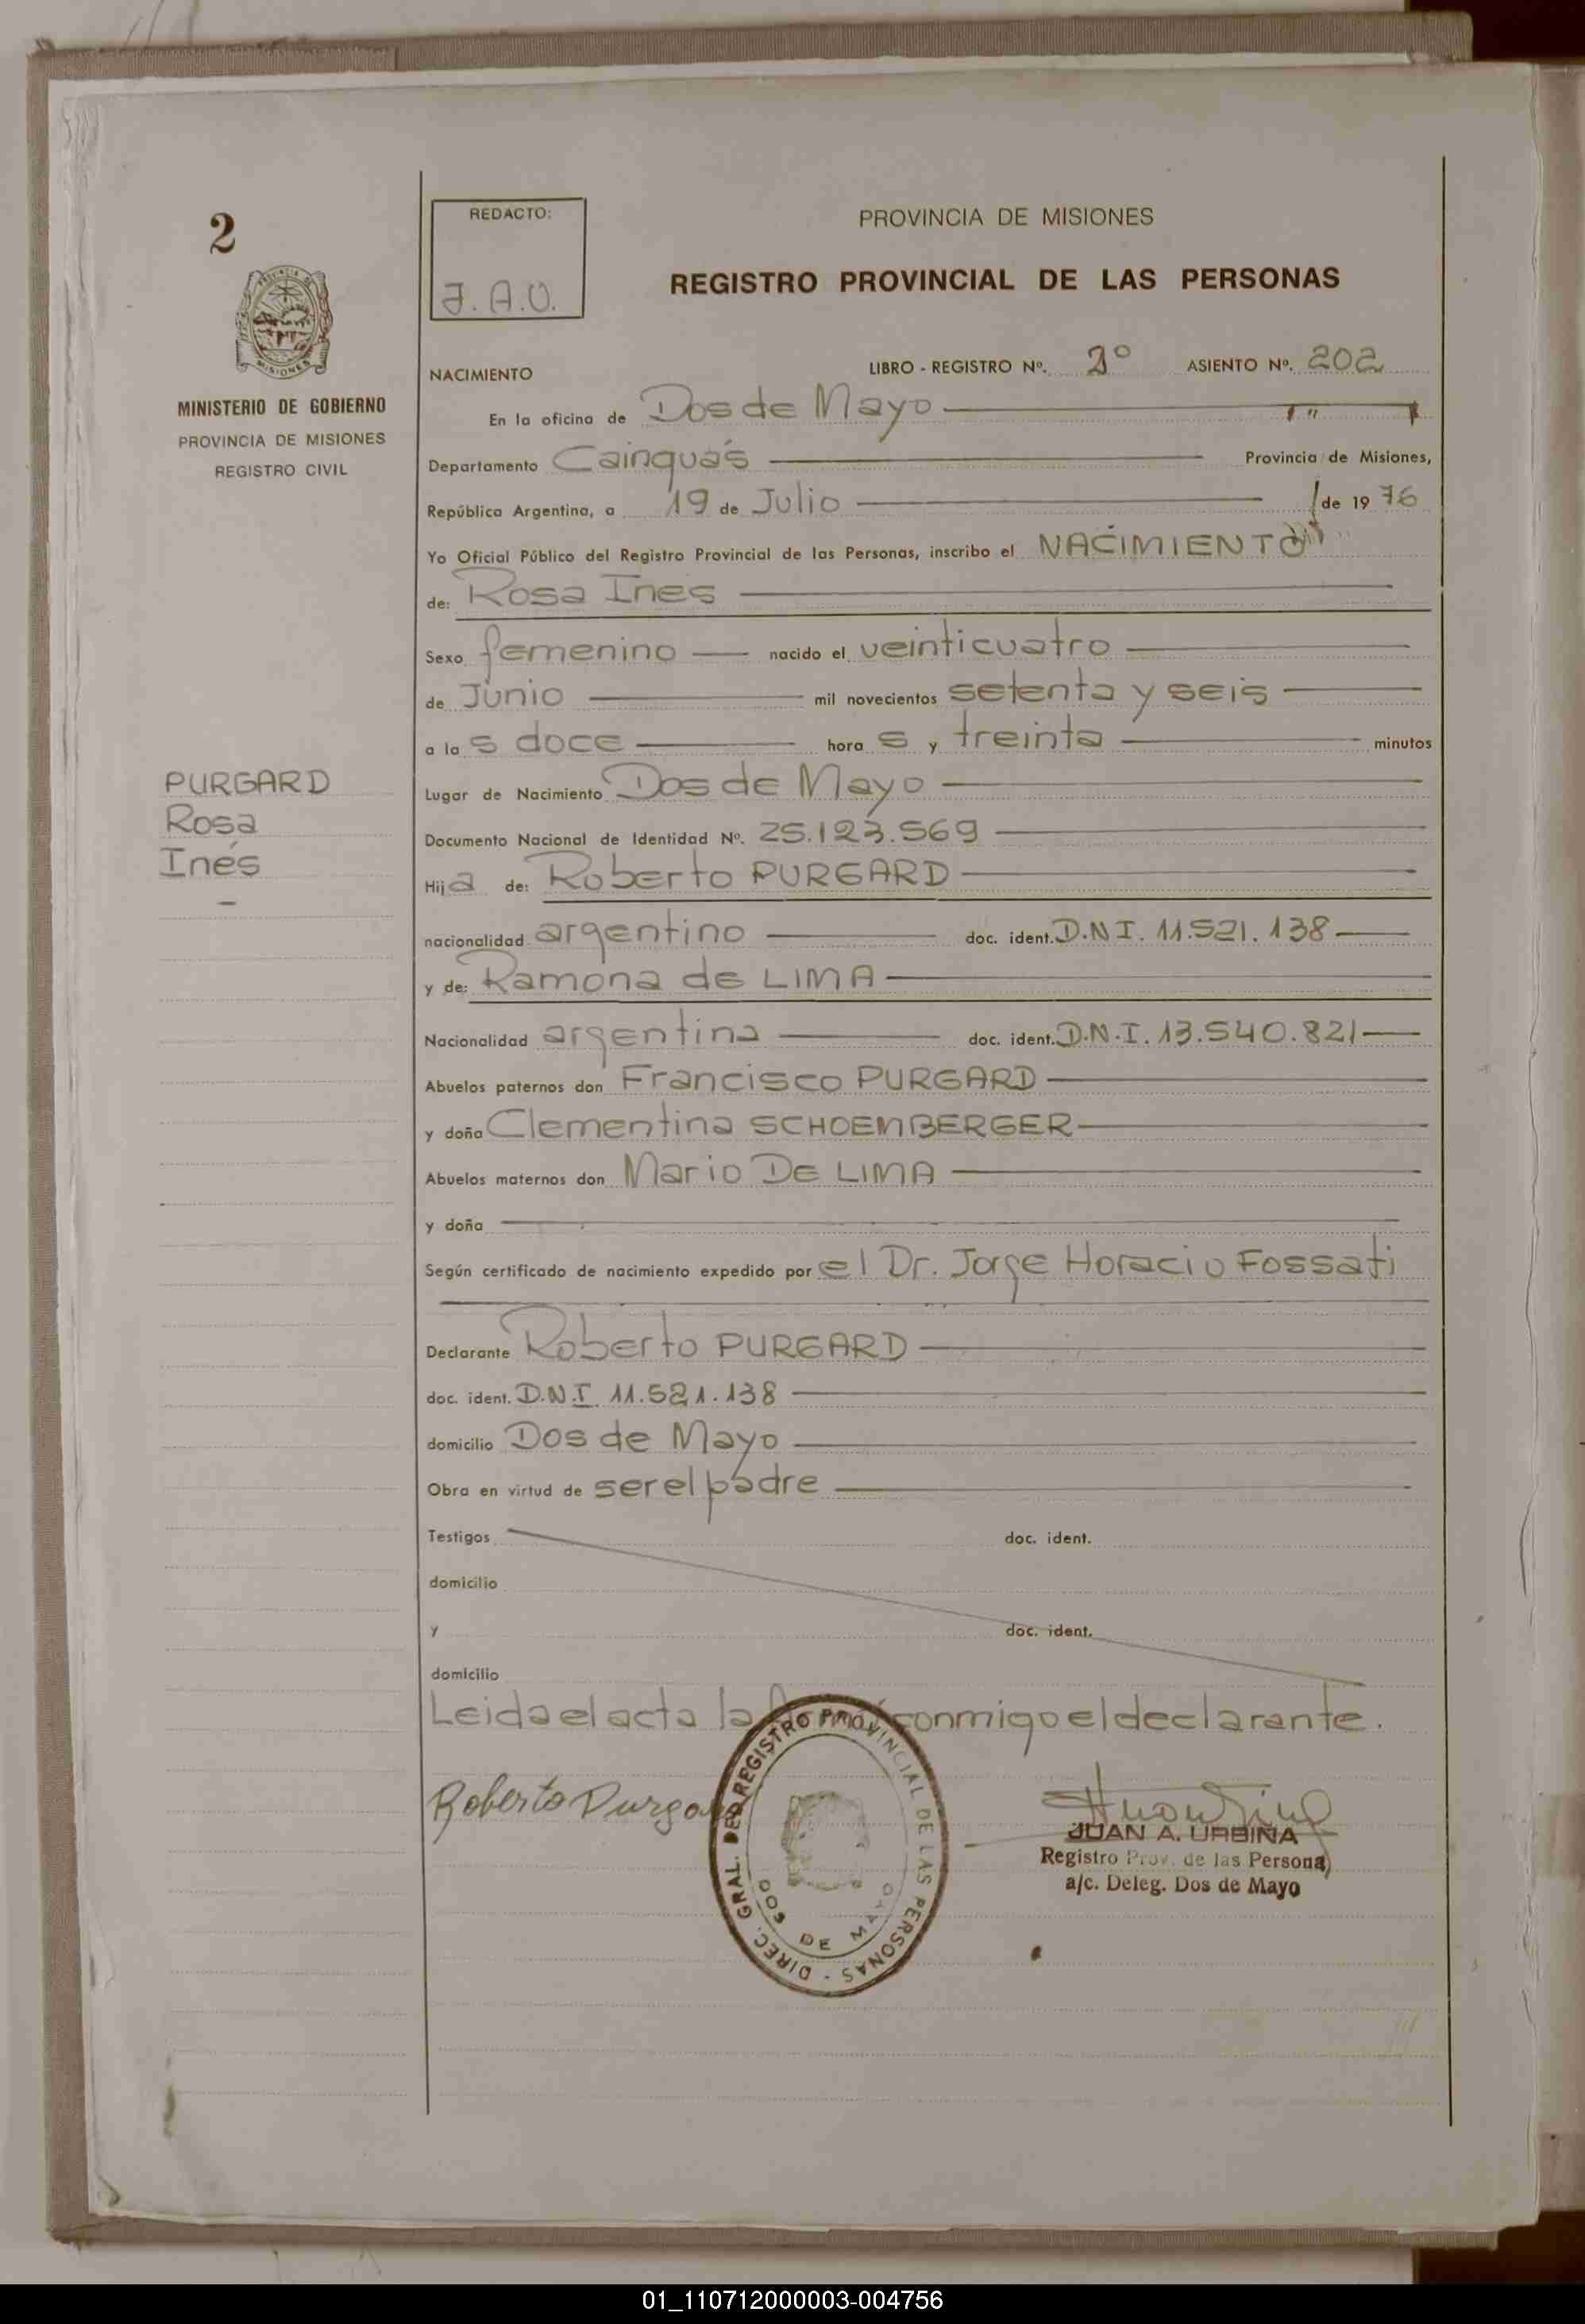 2
REDACTO:
J. A. U.
PROVINCIA DE MISIONES
REGISTRO PROVINCIAL DE LAS PERSONAS
MINISTERIO DE GOBIERNO
PROVINCIA DE MISIONES
REGISTRO CIVIL
NACIMIENTO LIBRO - REGISTRO Nº. 2º ASIENTO Nº. 202
En la oficina de Dos de Mayo
Departamento Cainguás Provincia de Misiones,
República Argentina, a 19 de Julio de 1976
Yo Oficial Público del Registro Provincial de las Personas, inscribo el NACIMIENTO
de: Rosa Ines
Sexo femenino nacido el veinticuatro
de Junio mil novecientos setenta y seis
a las doce horas y treinta minutos
PURGARD
Rosa
Inés
Lugar de Nacimiento Dos de Mayo
Documento Nacional de Identidad Nº. 25.123.569
Hija de: Roberto PURGARD
nacionalidad argentino doc. ident. D.N.I. 11.521.138
y de: Ramona de LIMA
Nacionalidad argentina doc. ident. D.N.I. 13.540.821
Abuelos paternos don Francisco PURGARD
y doña Clementina SCHOEMBERGER
Abuelos maternos don Mario DE LIMA
y doña
Según certificado de nacimiento expedido por el Dr. Jorge Horacio Fossati
Declarante Roberto PURGARD
doc. ident. D.N.I. 11.521.138
domicilio Dos de Mayo
Obra en virtud de ser el padre
Testigos doc. ident.
domicilio
y doc. ident.
domicilio
Leida el acta la conmigo el declarante.
Roberto Purgard
DIREC. GRAL. DEL REGISTRO PROVINCIAL DE LAS PERSONAS -
DOS DE MAYO
JUAN A. URBINA
Registro Prov. de las Persona
a/c. Deleg. Dos de Mayo
01_110712000003-004756